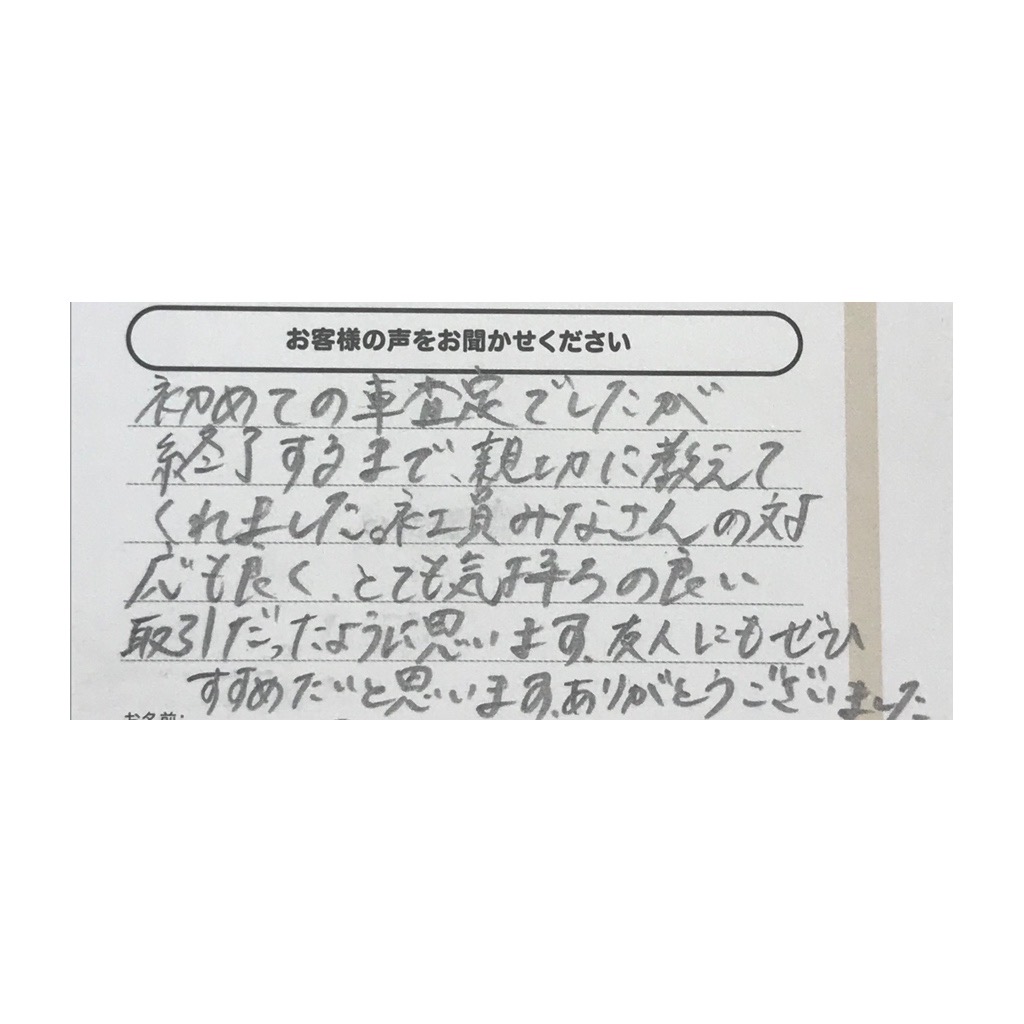 お客様の声をお聞かせください
初めての車査定でしたが
終了するまで、親切に教えて
くれました。社員みなさんの対
応も良く、とても気持ちの良い
取引だったように思います。友人にもぜひ
すすめたいと思います。ありがとうございました
お名前: